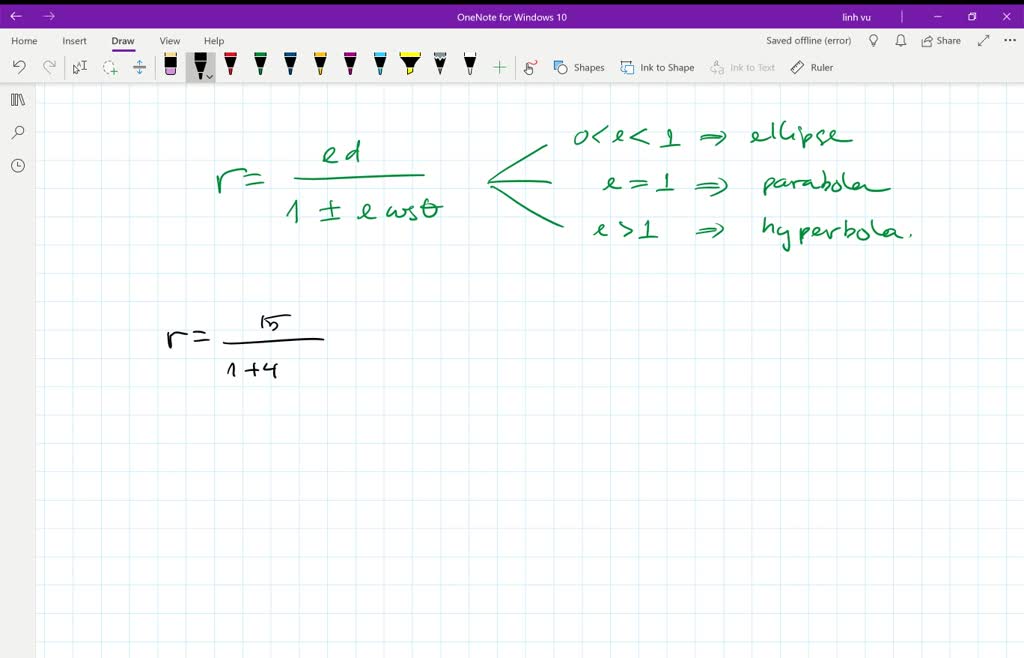 OneNote for Windows 10
linh vu
Home Insert Draw View Help
Saved offline (error)
Share
Shapes
Ink to Shape
Ink to Text
Ruler
r = ed / 1 ± e cosθ
0 < e < 1 ⇒ ellipse
e = 1 ⇒ parabola
e > 1 ⇒ hyperbola.
r = 15 / 1 + 4